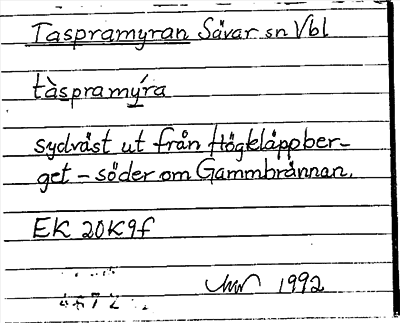 Taspramyran Sävar sn Vbl
tàspramýra
sydväst ut från Högkläppber-
get – söder om Gammbrännan.
EK 20K9f
1992